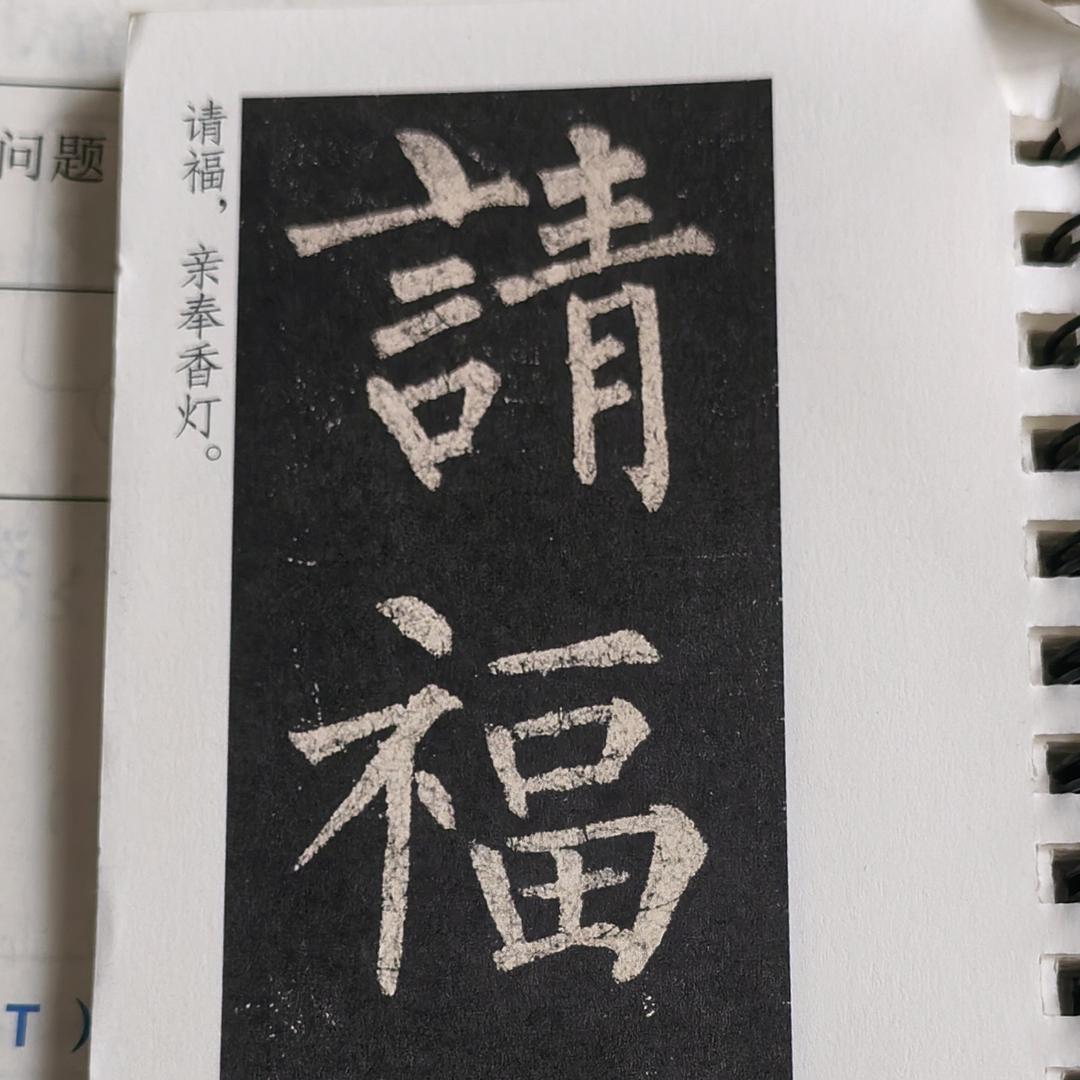 请福，亲奉香灯。
請福
问题
T）